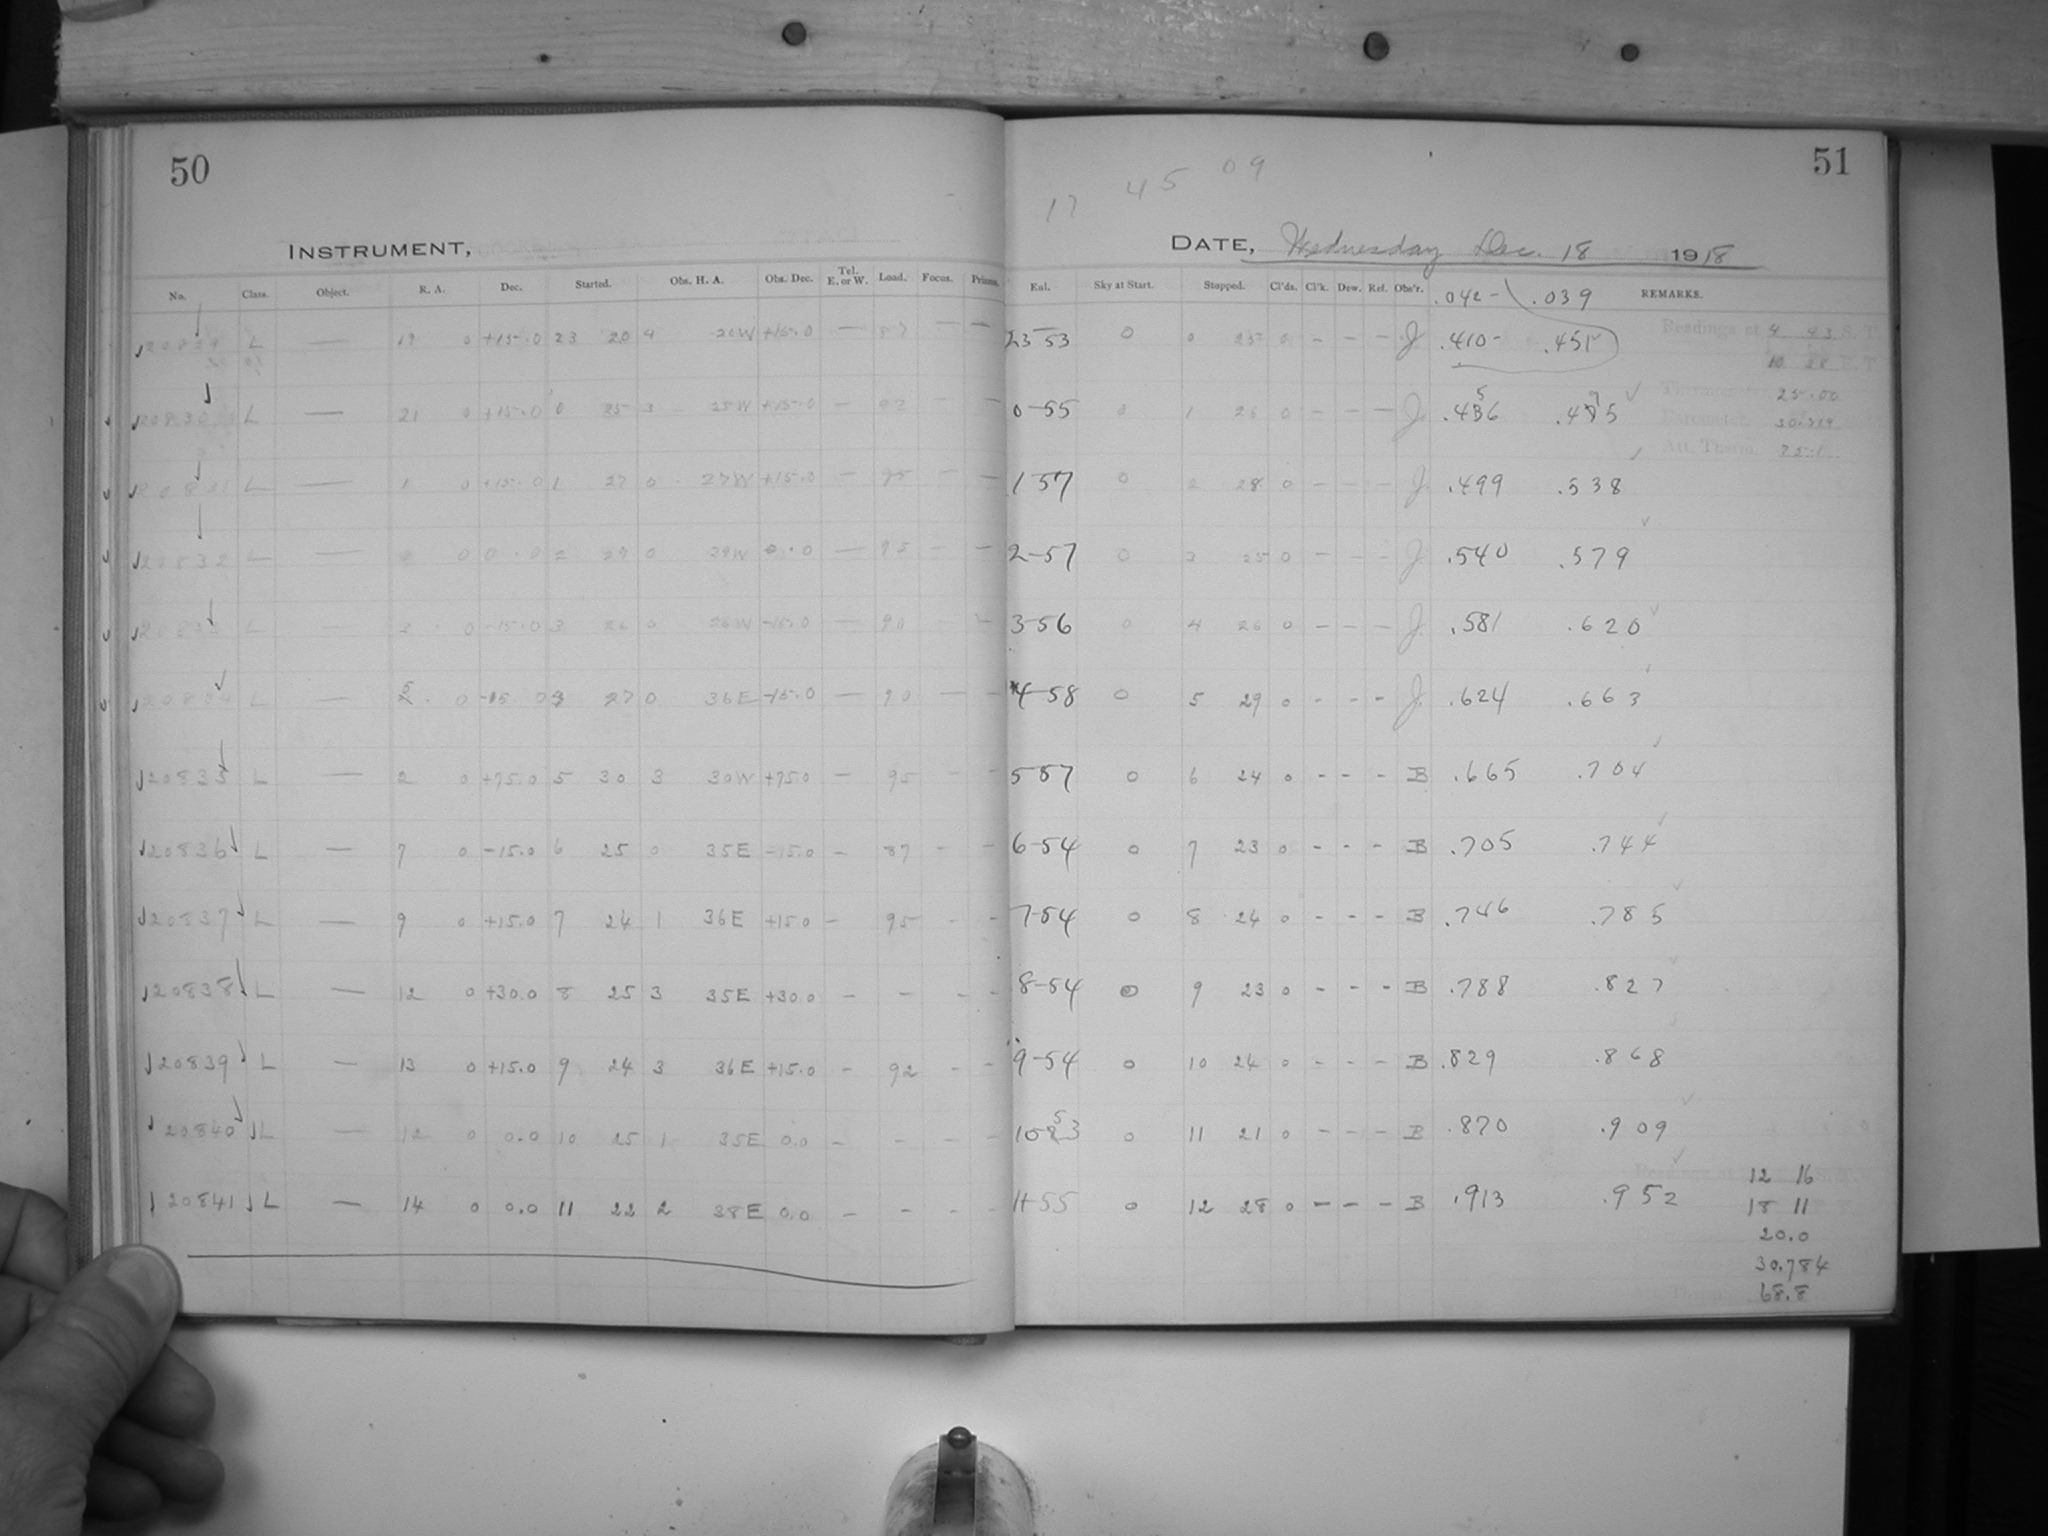 50
INSTRUMENT,
No. Class. Object. R. A. Dec. Started. Obs. H. A. Obs. Dec. Tel. E. or W. Load. Focus. Prisms.
20829 L — 0 +15.0 23 20 4 20W +15.0 — 87 — —
20830 L — 21 0 +15.0 0 25 3 25W +15.0 — 92 - -
20831 L — 1 0 +15.0 1 27 0 27W +15.0 — 95 — —
20832 L — 0 0.0 2 29 0 29W 0.0 — 95 - —
L — 3 0 -15.0 3 26 0 26W -15.0 — 90 —
20834 L — 5 0 -15.0 27 0 36E -15.0 — 90 — —
20835 L — 2 0 +75.0 5 30 3 30W +75.0 — 95 - -
20836 L — 7 0 -15.0 6 25 0 35E -15.0 - 87 - -
20837 L — 9 0 +15.0 7 24 1 36E +15.0 - 95 - -
20838 L — 12 0 +30.0 8 25 3 35E +30.0 - - - -
20839 L — 13 0 +15.0 9 24 3 36E +15.0 - 92 - -
20840 L — 12 0 0.0 10 25 1 35E 0.0 - - - -
20841 L — 14 0 0.0 11 22 2 38E 0.0 - - - -
51
17 45 09
DATE, Wednesday Dec. 18 1918
Eul. Sky at Start. Stopped. Cl'ds. Cl'k. Dew. Ref. Obs'r. .042- .039 REMARKS.
23 53 0 0 25 0 - - - J .410- .451
0-55 0 1 26 0 - - - J. .456 .475
1 57 0 2 28 0 - - - J. .499 .538
2-57 0 3 25 0 - - - J .540 .579
3-56 0 4 26 0 - - - J. .581 .620
4-58 0 5 29 0 - - - J. .624 .663
5 57 0 6 24 0 - - - B .665 .704
6-54 0 7 23 0 - - - B .705 .744
7-54 0 8 24 0 - - - B .746 .785
8-54 0 9 23 0 - - - B .788 .827
9-54 0 10 24 0 - - - B .829 .868
10 53 0 11 21 0 - - - B .870 .909
11-55 0 12 28 0 - - - B .913 .952
Readings at 4 43 S. T.
10 28
25.00
Barometer.
Att. Therm.
12 16
18 11
20.0
30.784
68.8